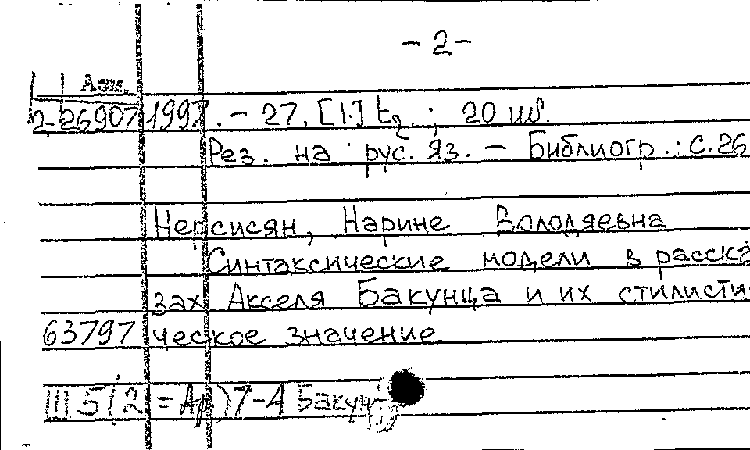 -2-
2-26907 1997. - 27, [1.] էջ ; 20 սմ.
Рез. на рус. яз. - Библиогр.: с. 26
Нерсисян, Нарине Володяевна
Синтаксические модели в расска-
зах Акселя Бакунца и их стилисти-
63797 ческое значение
Ш5(2=Ар)7-4 Бакунц